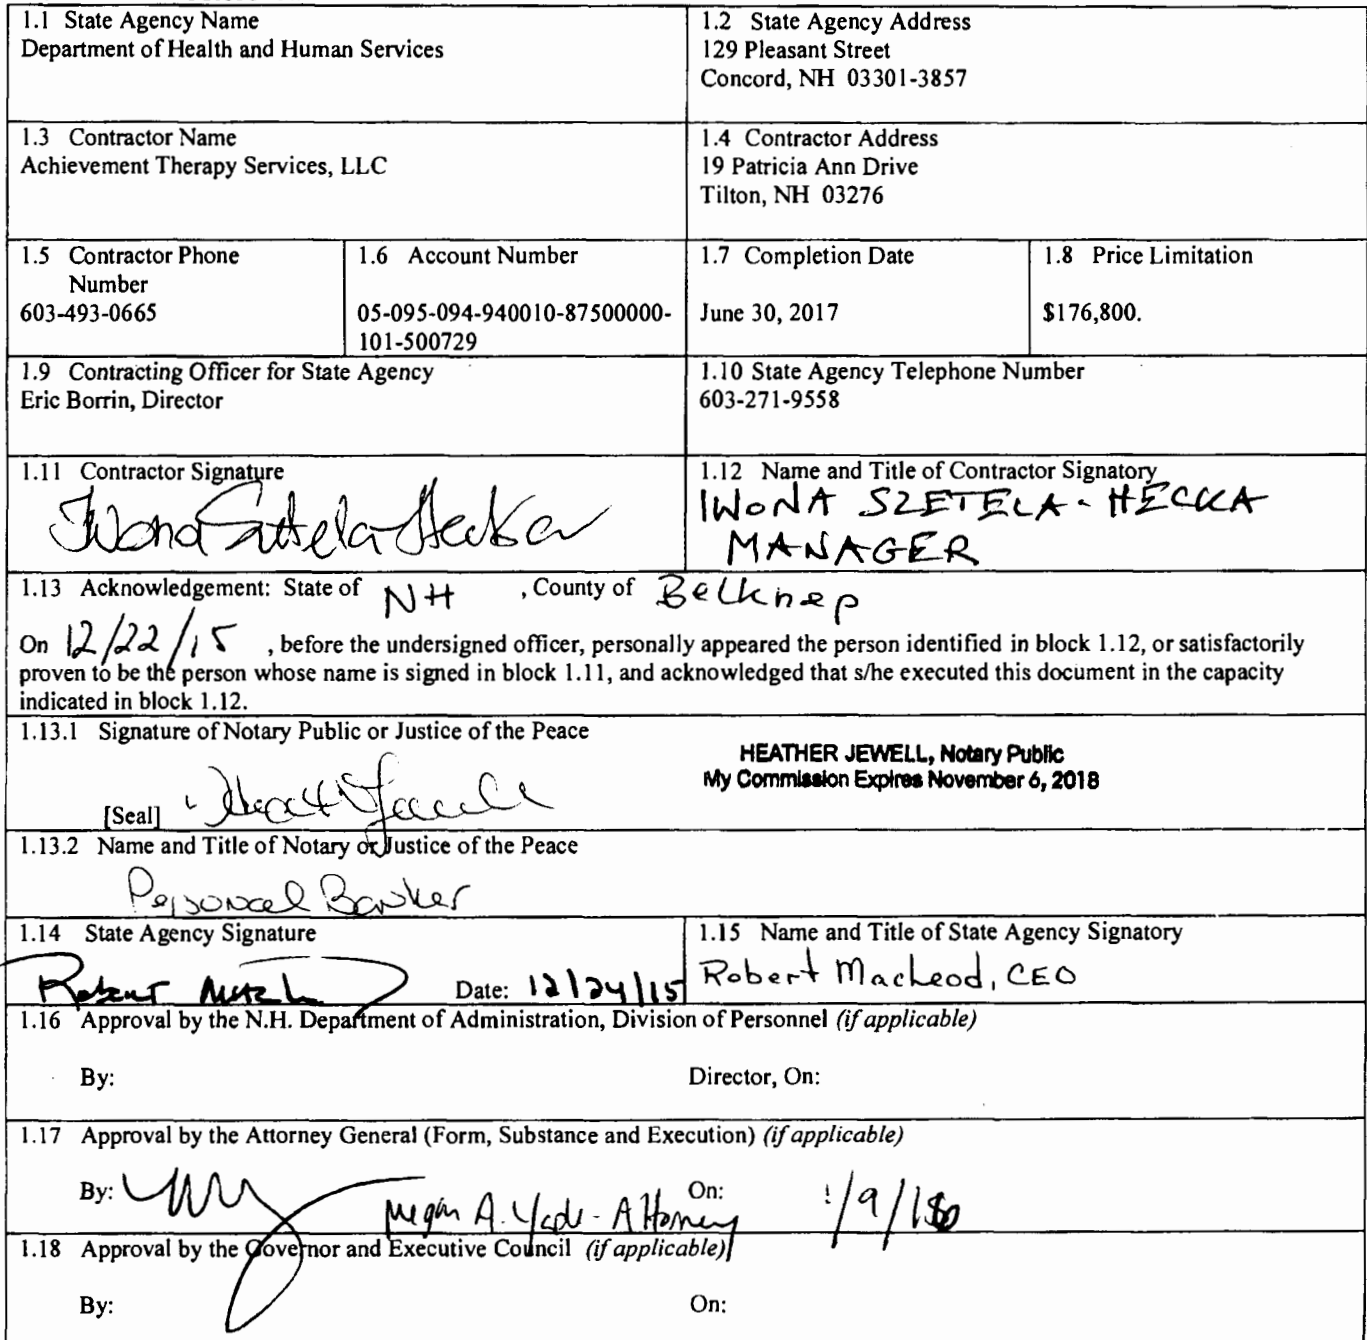 1.1 State Agency Name
Department of Health and Human Services
1.2 State Agency Address
129 Pleasant Street
Concord, NH 03301-3857
1.3 Contractor Name
Achievement Therapy Services, LLC
1.4 Contractor Address
19 Patricia Ann Drive
Tilton, NH 03276
1.5 Contractor Phone
Number
603-493-0665
1.6 Account Number
05-095-094-940010-87500000-
101-500729
1.7 Completion Date
June 30, 2017
1.8 Price Limitation
$176,800.
1.9 Contracting Officer for State Agency
Eric Borrin, Director
1.10 State Agency Telephone Number
603-271-9558
1.11 Contractor Signature
1.12 Name and Title of Contractor Signatory
IWONA SZETELA-HECKA
MANAGER
1.13 Acknowledgement: State of NH , County of Belknep
On 12/22/15 , before the undersigned officer, personally appeared the person identified in block 1.12, or satisfactorily
proven to be the person whose name is signed in block 1.11, and acknowledged that s/he executed this document in the capacity
indicated in block 1.12.
1.13.1 Signature of Notary Public or Justice of the Peace
HEATHER JEWELL, Notary Public
My Commission Expires November 6, 2018
[Seal]
1.13.2 Name and Title of Notary or Justice of the Peace
Personal Banker
1.14 State Agency Signature
Date: 12/24/15
1.15 Name and Title of State Agency Signatory
Robert MacLeod, CEO
1.16 Approval by the N.H. Department of Administration, Division of Personnel (if applicable)
By:
Director, On:
1.17 Approval by the Attorney General (Form, Substance and Execution) (if applicable)
By: Megan A. - Attorney On: 1/9/
1.18 Approval by the Governor and Executive Council (if applicable)
By:
On: